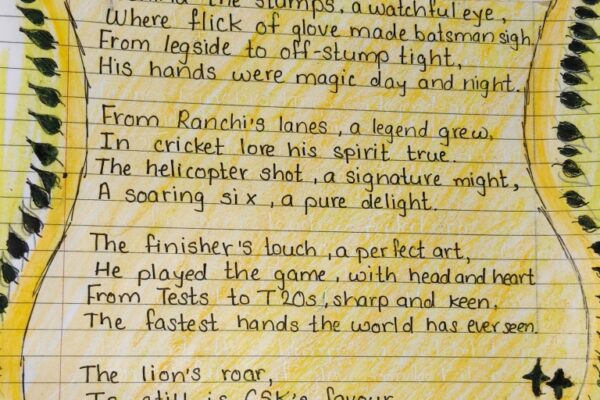 the stumps, a watchful eye,
Where flick of glove made batsman sigh.
From legside to off-stump tight,
His hands were magic day and night.
From Ranchi's lanes, a legend grew,
In cricket lore his spirit true.
The helicopter shot, a signature might,
A soaring six, a pure delight.
The finisher's touch, a perfect art,
He played the game, with head and heart
From Tests to T20s, sharp and keen.
The fastest hands the world has ever seen.
The lion's roar,
To still is CSK's favour